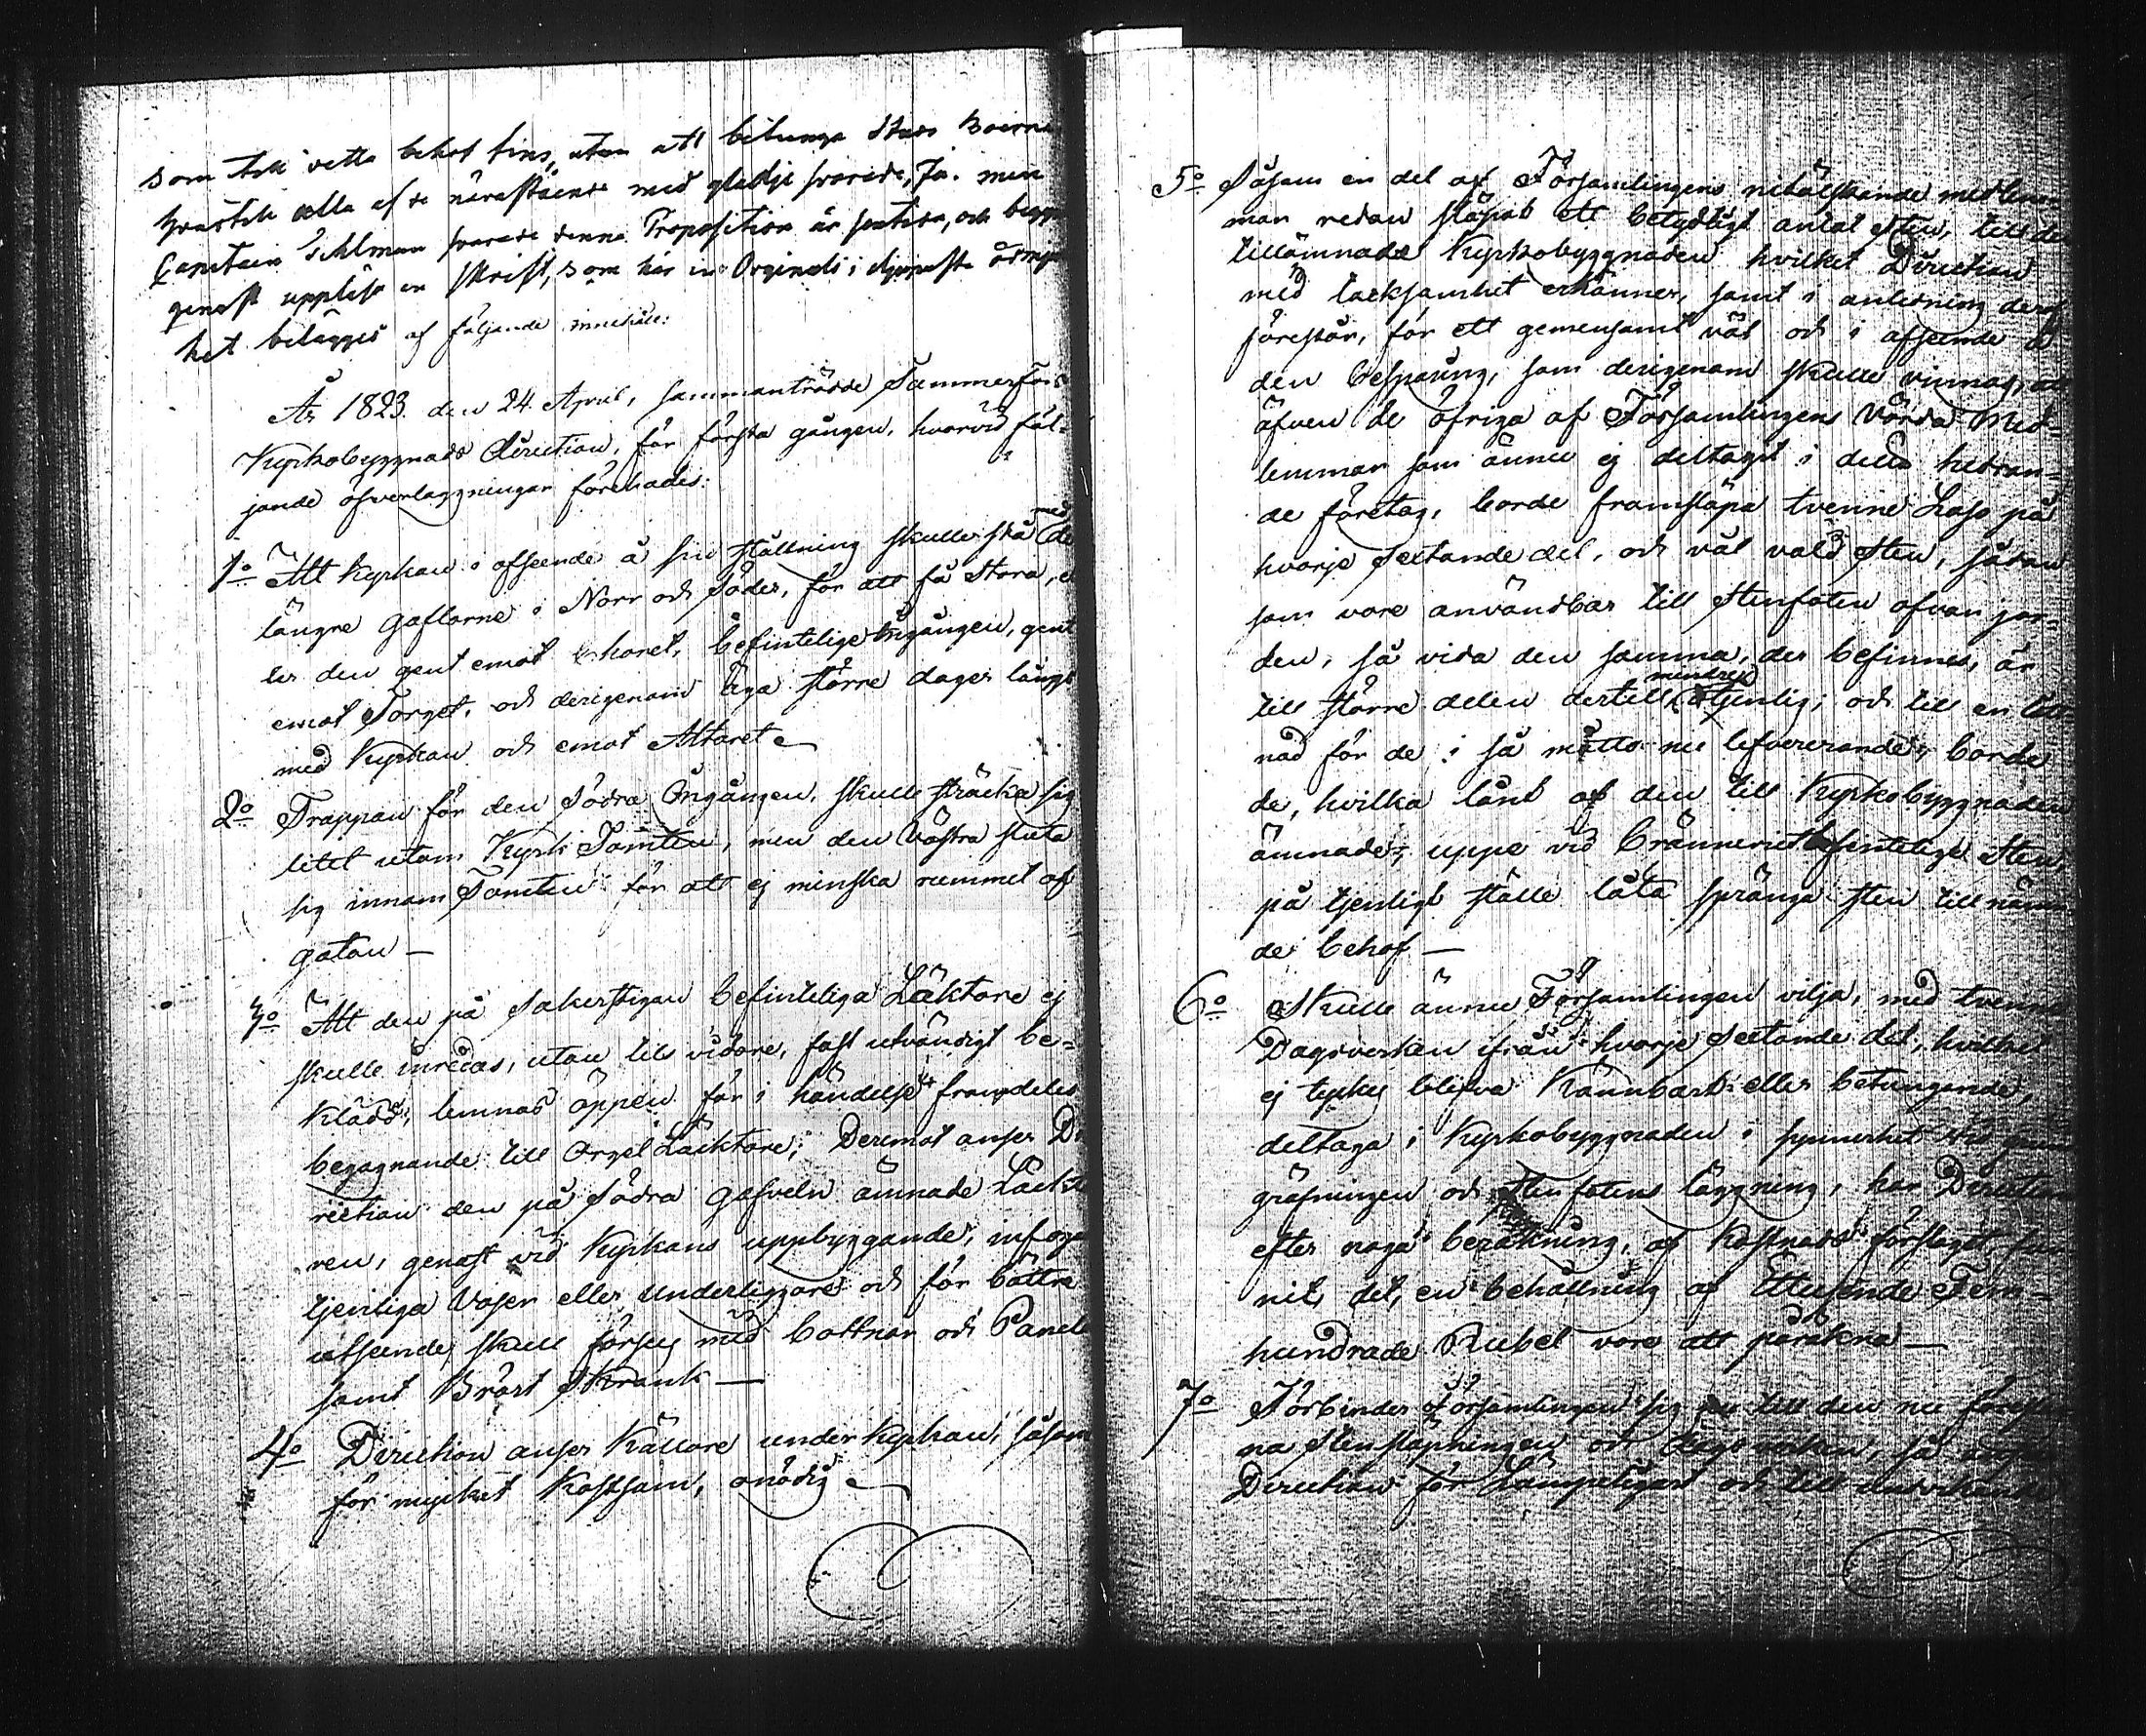 som till detta behof fins, utan att betunga Stads Boerne
hvartill alla af de närvarande med glädje svarade, Ja. men
Capitain Ihlman svarade denna Proposition är
genast uppläste en skrift, som här in Orginali i djupaste ödmju
het bilägges af följande innehåll:
År 1823. den 24. April, sammanträdde Tammerfors
Kyrkobyggnads Direction, för första gången, hvarvid föl-
jande öfverläggningar förehades:
1o Att Kyrkan i afseende å sin ställning skulle stå med de
längre gaflarne i Norr och Söder, för att få Stora,
ler den gent emot choret, befintelige Ingången, gent
emot Torget, och derigenom äga större dager längs
med Kyrkan och emot Altaret
2o Trappan för den Södra Ingången, skulle sträcka sig
litet utom Kyrk Tomten, men den Västra sluta
sig innom Tomten för att ej minska rummet af
gatan —
3o Att den på Sakerstigan befinteliga Läktare ej
skulle inredas, utan tils vidare, fast utvändigt be-
klädd, lemnas öppen för i händelse framdeles
begagnande till Orgel Läcktare; Deremot anser Di
rection den på Södra gafveln ämnade Läckta
ren, genast vid Kyrkans uppbyggande, infoga
tjenliga Vasar eller underliggare och för bättre
utseende, skull förses med bottnar och Panel
samt Bröst Skrank —
4o Direction anser Källare under Kyrkan, såsom
för mycket Kostsam, onödig
5o Såsom en del af Församlingens nitälskande medlem
mar redan släpat ett betydligt antal Sten, till den
tillämnade Kyrkobyggnaden hvilket Direction
med tacksamhet erkänner, samt i anledning deraf
föreslår, för ett gemensamt väl och i afseende å
den besparing, som derigenom skulle vinnas, att
äfven de öfriga af Församlingens Vörda Med-
lemmar som ännu ej deltagit i detta hedran-
de företag, borde framsläpa tvenne Lass på
hvarje Sextonde del, och väl vald Sten, sådan
som vore användbar till Stenfoten ofvan jor-
den, så vida den samma, der befinnes, är
till större delen dertill mindre tjenlig; och till en lik-
nad för de i så måtto nu lefvererande, borde
de, hvilka lånt af den till Kyrkobyggnaden
ämnade, uppe vid Bränneriet befintelige Sten,
på tjenligt ställe låta spränga sten till näm
de behof —
6o Skulle ännu Församlingen vilja, med tvenne
Dagsverken ifrån hvarje Sextonde del, hvilket
ej tyckes blifva Kännbart eller betungande,
deltaga i Kyrkobyggnaden i synnerhet vid grund
gräfningen och Stenfotens läggning, har Direction
efter noga beräkning, af Kostnads förslaget fun
nit, det, en behållning af Ettusende Fem-
hundrade Rubel vore att påräkna —
7o Förbinder Församlingen sig till den nu föreslag
na Stensläpningen och Dagsverken, så anser
Direction för Lämpeligast och till